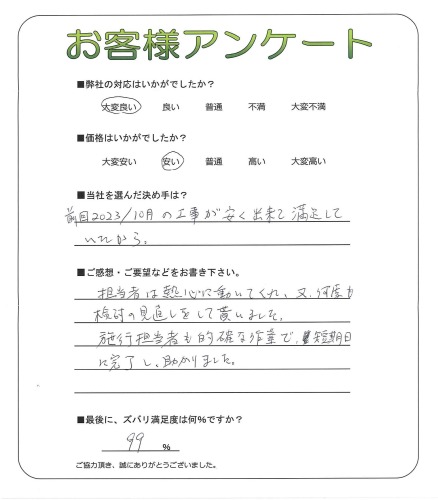 お客様アンケート
■弊社の対応はいかがでしたか?
大変良い 良い 普通 不満 大変不満
■価格はいかがでしたか?
大変安い 安い 普通 高い 大変高い
■当社を選んだ決め手は?
前回2023/10月の工事が安く出来て満足して
いたから。
■ご感想・ご要望などをお書き下さい。
担当者は熱心に動いてくれ、又、何度も
検討の見直しをして貰いました。
施行担当者も的確な作業で、短期日
に完了し、助かりました。
■最後に、ズバリ満足度は何%ですか?
99 %
ご協力頂き、誠にありがとうございました。